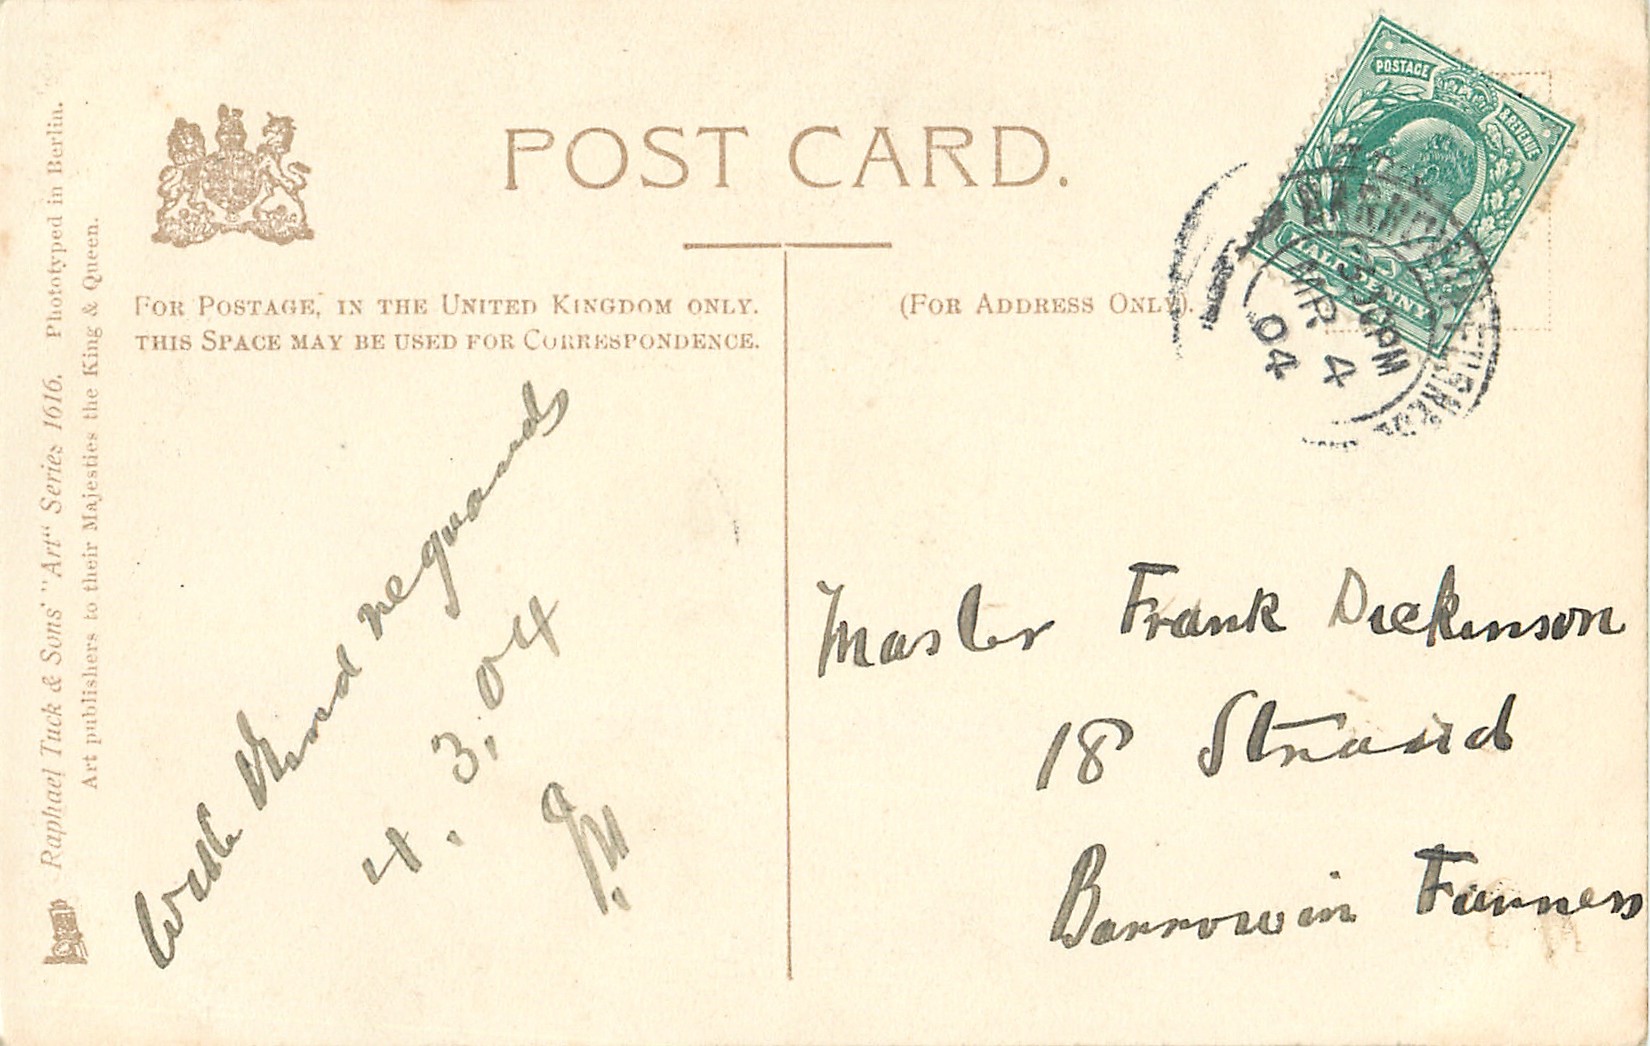 POST CARD.
FOR POSTAGE, IN THE UNITED KINGDOM ONLY.
THIS SPACE MAY BE USED FOR CORRESPONDENCE.
(FOR ADDRESS ONLY).
Raphael Tuck & Sons' "Art" Series 1616. Phototyped in Berlin.
Art publishers to their Majesties the King & Queen.
POSTAGE
& REVENUE
HALFPENNY
PM
MR 4
04
With kind regards
4.3.04
Master Frank Dickinson
18 Strand
Barrow in Furness